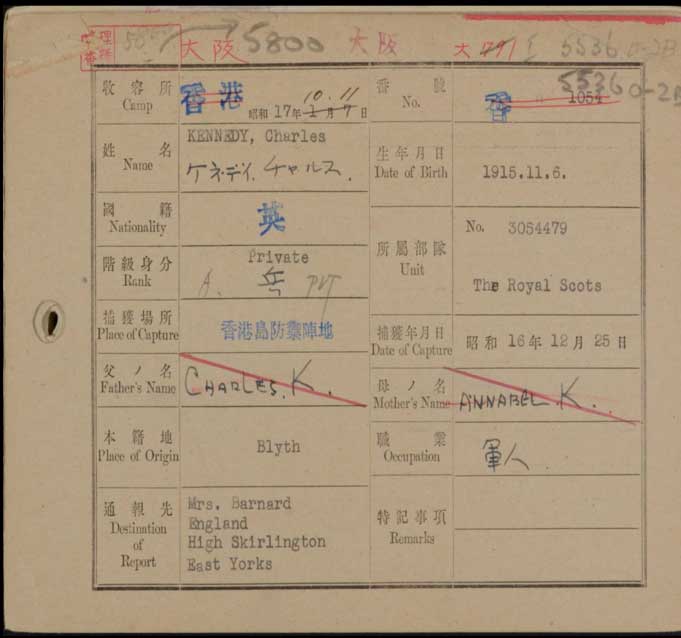 大阪 5800 大阪 大 791 I 5536 0-2B
5536 0-2B
收容所
Camp
香港
10. 11
昭和 17年 1月 7日
番號
No.
香 1054
姓名
Name
KENNEDY, Charles
ケネディ. チャルス.
生年月日
Date of Birth
1915.11.6.
國籍
Nationality
英
所屬部隊
Unit
No. 3054479
The Royal Scots
階級身分
Rank
Private
兵 PVT
捕獲場所
Place of Capture
香港島防禦陣地
捕獲年月日
Date of Capture
昭和 16年 12月 25日
父ノ名
Father's Name
CHARLES. K.
母ノ名
Mother's Name
ANNABEL. K.
本籍地
Place of Origin
Blyth
職業
Occupation
軍人
通報先
Destination
of
Report
Mrs. Barnard
England
High Skirlington
East Yorks
特記事項
Remarks